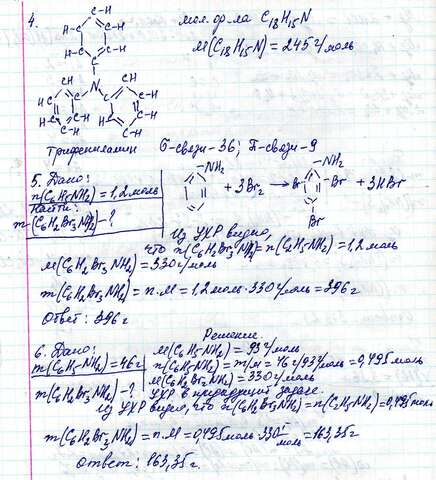 4.
мол. ф-ла C18H15N
M(C18H15N) = 245 г/моль
C-H
H-C C-H
H-C C-H
C
N
CH CH
HC C C CH
HC C-H HC C-H
C-H C-H
Трифениламин б-связи-36; П-связи-9
5. Дано:
n(C6H5NH2)=1,2 моль
Найти:
m(C6H2Br3NH2)-?
-NH2 + 3Br2 → Br -NH2 -Br Br + 3HBr
Из УХР видно,
что n(C6H2Br3NH2)=n(C6H5NH2)=1,2 моль
M(C6H2Br3NH2)=330 г/моль
m(C6H2Br3NH2)=n·M=1,2 моль·330 г/моль=396 г
Ответ: 396 г
Решение.
6. Дано:
m(C6H5-NH2)=46 г
m(C6H2Br3NH2)-?
M(C6H5-NH2)=93 г/моль
n(C6H5NH2)=m/M=46 г/93 г/моль=0,495 моль
M(C6H2Br3NH2)=330 г/моль
УХР в предыдущей задаче
Из УХР видно, что n(C6H2Br3NH2)=n(C6H5NH2)=0,495 моль
m(C6H2Br3NH2)=n·M=0,495 моль·330 г/моль=163,35 г
Ответ: 163,35 г.